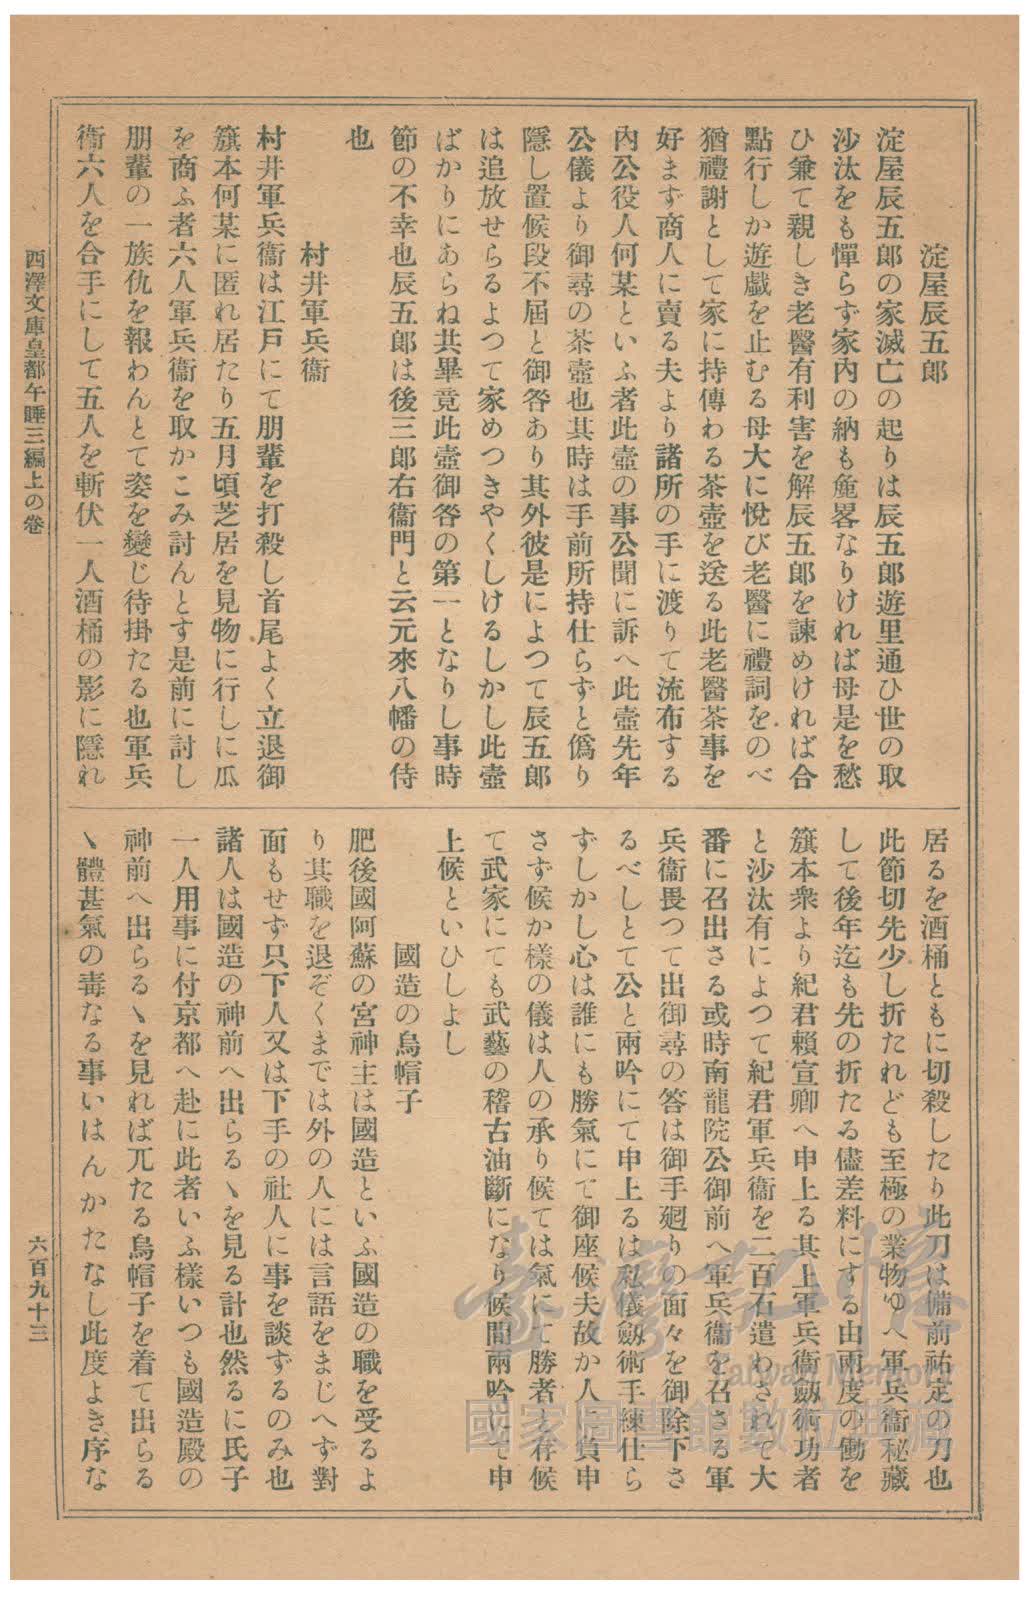 淀屋辰五郎
淀屋辰五郎の家滅亡の起りは辰五郎遊里通ひ世の取
沙汰をも憚らず家内の納も麁畧なりければ母是を愁
ひ兼て親しき老醫有利害を解辰五郎を諫めければ合
點行しか遊戯を止むる母大に悅び老醫に禮詞をのべ
猶禮謝として家に持傳わる茶壺を送る此老醫茶事を
好まず商人に賣る夫より諸所の手に渡りて流布する
內公役人何某といふ者此壺の事公聞に訴へ此壺先年
公儀より御尋の茶壺也其時は手前所持仕らずと僞り
隱し置候段不屆と御咎あり其外彼是によつて辰五郎
は追放せらるよつて家めつきやくしけるしかし此壺
ばかりにあらね共畢竟此壺御咎の第一となりし事時
節の不幸也辰五郎は後三郎右衞門と云元來八幡の侍
也
村井軍兵衞
村井軍兵衞は江戶にて朋輩を打殺し首尾よく立退御
籏本何某に匿れ居たり五月頃芝居を見物に行しに瓜
を商ふ者六人軍兵衞を取かこみ討んとす是前に討し
朋輩の一族仇を報わんとて姿を變じ待掛たる也軍兵
衞六人を合手にして五人を斬伏一人酒桶の影に隱れ
居るを酒桶ともに切殺したり此刀は備前祐定の刀也
此節切先少し折たれども至極の業物ゆへ軍兵衞秘藏
して後年迄も先の折たる儘差料にする由兩度の働を
籏本衆より紀君賴宣卿へ申上る其上軍兵衞劔術功者
と沙汰有によつて紀君軍兵衞を二百石遣わされて大
番に召出さる或時南龍院公御前へ軍兵衞を召さる軍
兵衞畏つて出御尋の答は御手廻りの面々を御除下さ
るべしとて公と兩吟にて申上るは私儀劔術手練仕ら
ずしかし心は誰にも勝氣にて御座候夫故か人に負申
さず候か樣の儀は人の承り候ては氣にて勝者と存候
て武家にても武藝の稽古油斷になり候間兩吟にて申
上候といひしよし
國造の烏帽子
肥後國阿蘇の宮神主は國造といふ國造の職を受るよ
り其職を退ぞくまでは外の人には言語をまじへず對
面もせず只下人又は下手の社人に事を談ずるのみ也
諸人は國造の神前へ出らるゝを見る計也然るに氏子
一人用事に付京都へ赴に此者いふ樣いつも國造殿の
神前へ出らるゝを見れば兀たる烏帽子を着て出らる
ゝ體甚氣の毒なる事いはんかたなし此度よき序な
西澤文庫皇都午睡三編上の卷
六百九十三
臺灣記憶
Taiwan Memory
國家圖書館數位典藏